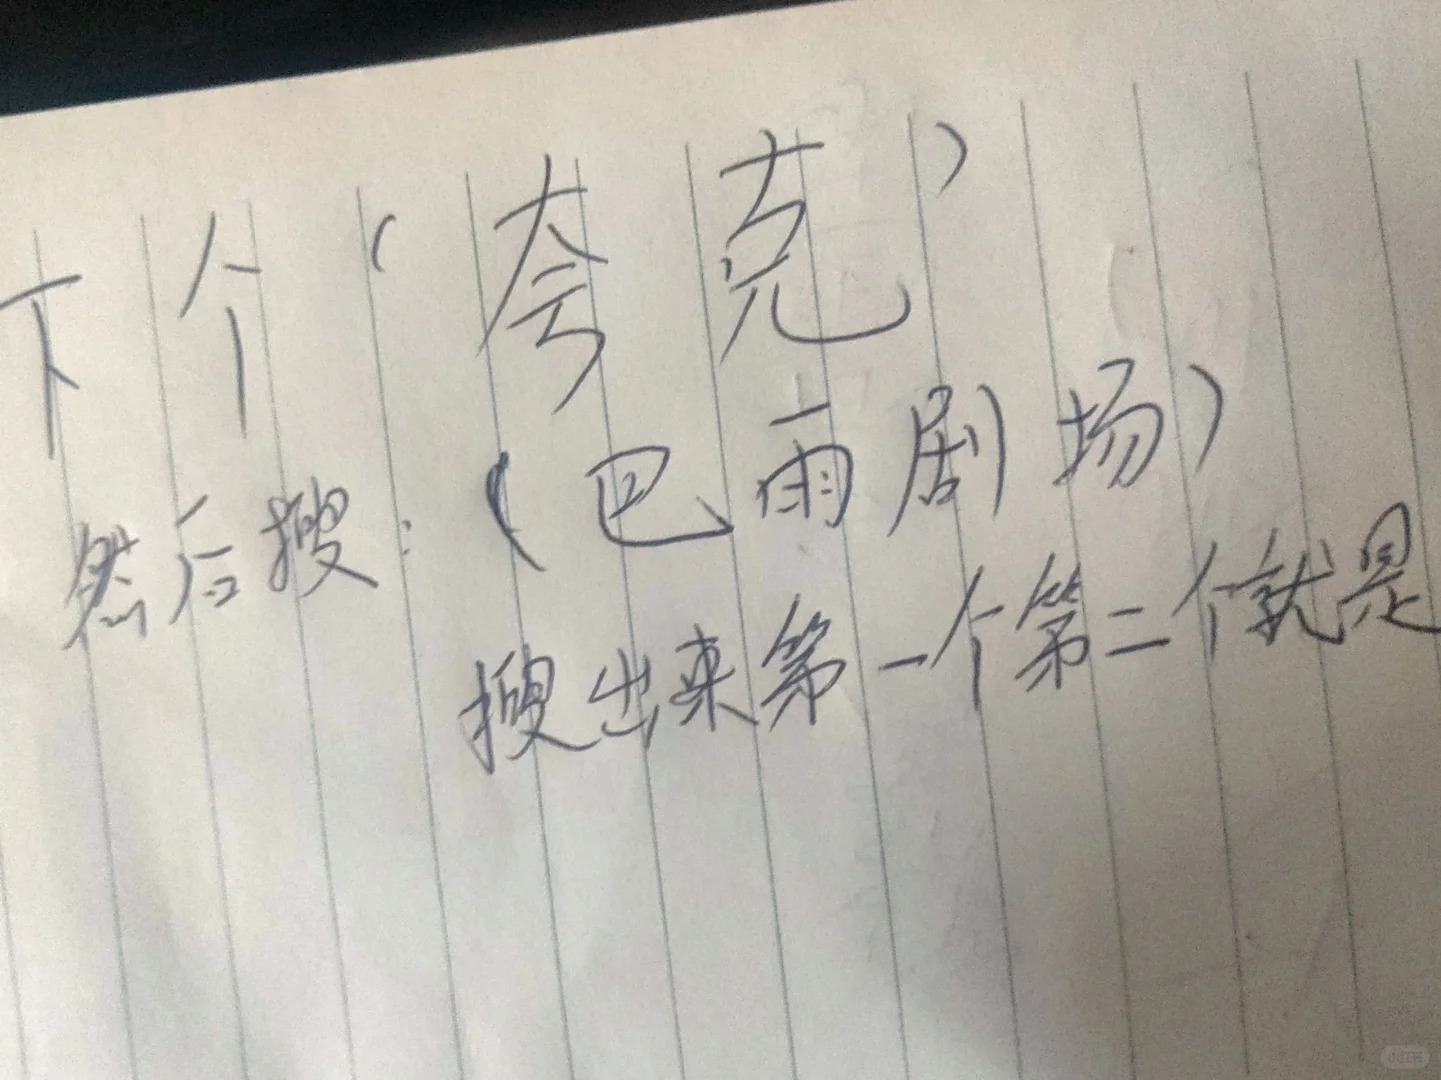 下个（夸克）
然后搜：（巴雨剧场）
搜出来第一个第二个就是